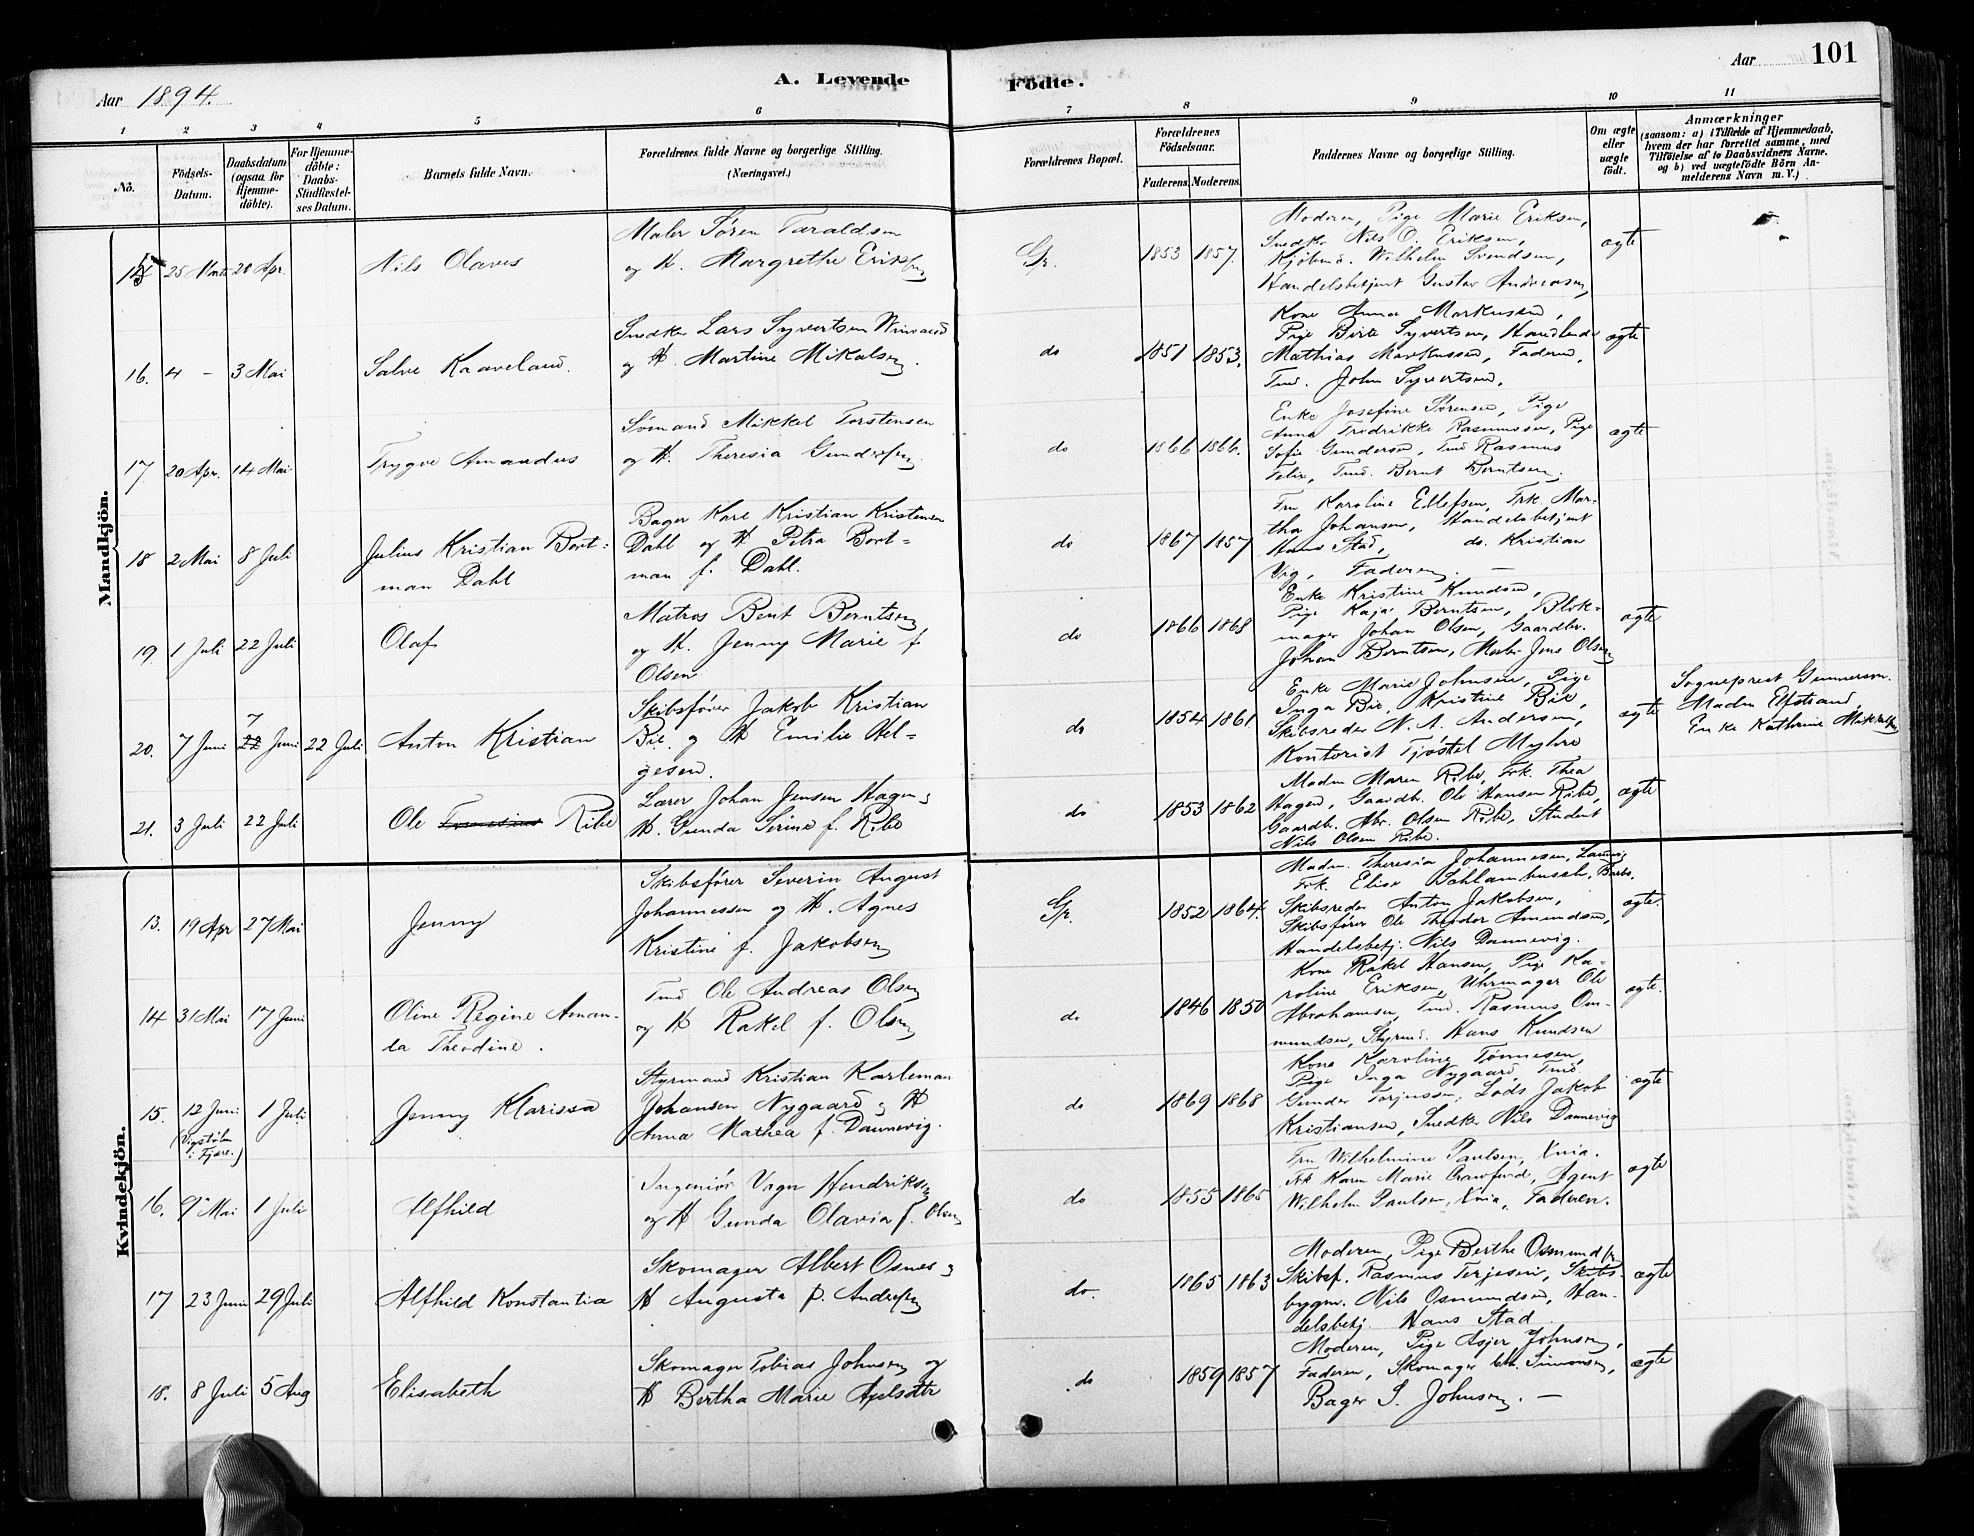 Aar 1894.
A. Levende
Födte.
Aar 101
1 2 3 4 5 6 7 8 9 10 11
No.
Födsels-
Datum.
Daabsdatum
(ogsaa for
Hjemme-
döbte).
For Hjemme-
döbte:
Daabs-
Stadfæstel-
ses Datum.
Barnets fulde Navn.
Forældrenes fulde Navne og borgerlige Stilling.
(Næringsvei.)
Forældrenes Bopæl.
Forældrenes
Födselsaar.
Faderens. Moderens.
Faddernes Navne og borgerlige Stilling.
Om ægte
eller
uægte
födt.
Anmærkninger
(saasom: a) i Tilfælde af Hjemmedaab,
hvem der har forrettet samme, med
Tilföielse af to Daabsvidners Navne.
og b) ved uægtefödte Börn An-
melderens Navn m. V.)
Mandkjön.
15 25 Marts 20 Apr. Nils Olaves
Maler Søren Taraldsen
og H. Margrethe Eriksen
Gr. 1853 1857.
Moderen, Pige Marie Eriksen,
Snedker Nils O. Eriksen,
Kjöbmd. Wilhelm Svendsen,
Handelsbetjent Gustav Andreasen,
ægte
16. 4 - 3 Mai Salve Kaaveland.
Snedker Lars Syvertsen
og H. Martine Mikalsen.
do 1851 1853.
Kone Anna Markussen,
Pige Birte Syvertsen, Handlende
Mathias Markussen, Faderen,
Tmd. John Syvertsen.
ægte
17 20 Apr. 14 Mai Trygve Amandus
Sömand Mikkel Torstensen
og H. Theresia Gundersen.
do 1866 1866.
Enke Josefine Sörensen, Pige
Anna Fredrikke Rasmussen, Pige
Sofie Gundersen, Tmd Rasmus
Felix, Tmd. Bernt Berntsen.
ægte
18 2 Mai 8 Juli Julius Kristian Bort-
man Dahl
Bager Karl Kristian Kristensen
Dahl og H Petra Bort-
man f. Dahl.
do 1867 1857
Fru Karoline Ellefsen, Frk. Mar-
tha Johansen, Handelsbetjent
Hans Stad, do. Kristian
Vig, Faderen. —
19 1 Juli 22 Juli Olaf
Matros Bent Berntsen
og H. Jenny Marie f
Olsen
do 1866 1868
Enke Kristine Knudsen,
Pige Kaja Berntsen, Blok-
mager Johan Olsen, Gaardbr.
Johan Berntsen, Jens Olsen
ægte
20. 7 Juni 7 Juni 22 Juli Anton Kristian
Skibsfører Jakob Kristian
Bie og H Emilie Hel-
gesen.
do 1854 1861
Enke Marie Johnsen, Pige
Inga Bie, Kristine Bie,
Skibsreder N. A. Andersen,
Kontorist Tjöstel Myhre
ægte
Sogneprest Gunnerson.
Madm Elfstrand,
Enke Kathrine Mikkelsen
21. 3 Juli 22 Juli Ole Ribe
Lærer Johan Jensen Hagen og
H. Gunda Serine f. Ribe
do 1853 1862
Madm Maren Ribe, Frk. Thea
Hagen, Gaardb. Ole Hansen Ribe,
Gaardb. Abr. Olsen Ribe, Student
Nils Olsen Ribe.
ægte
Kvindekjön.
13. 19 Apr 27 Mai Jenny
Skibsfører Severin August
Johannessen og H. Agnes
Kristine f. Jakobsen
Gr. 1852 1864.
Madm. Theresia Johannesen, Laurvig
Frk. Elise
Skibsreder Anton Jakobsen,
Skibsfører Ole Theodor Amundsen,
Handelsbetj. Nils Dannevig.
ægte.
14 31 Mai 17 Juni Oline Regine Aman-
da Theodine.
Tmd Ole Andreas Olsen
og H Rakel f. Olsen
do 1846 1850
Kone Rakel Hansen, Pige Ka-
roline Eriksen, Uhrmager Ole
Abrahamsen, Tmd. Rasmus Os-
mundsen, Styrmd. Hans Knudsen
ægte.
15. 12 Juni 1 Juli Jenny Klarissa
(Vigstölen
i Fjære.)
Styrmand Kristian Karleman
Johansen Nygaard og H
Anna Mathea f. Dannevig.
do 1869 1868
Kone Karoline Tönnesen,
Pige Inga Nygaard, Tmd
Gunder Torjussen, Lods Jakob
Kristiansen, Snedker Nils Dannevig
ægte
16. 9 Mai 1 Juli Alfhild
Ingeniör Vagn Hendriksen
og H Gunda Olavia f. Olsen
do 1855 1865
Fru Wilhelmine Paulsen, Xnia.
Frk Karen Marie Crawfurd, Agent
Wilhelm Paulsen, Xnia, Faderen.
ægte
17 23 Juni 29 Juli Alfhild Konstantia
Skomager Albert Osnes og
H Augusta f. Andersen
do. 1865 1863
Moderen, Pige Berthe Osmundsen
Skibsf. Rasmus Terjesen, Skibs-
bygm. Nils Osmundsen, Han-
delsbetj. Hans Stad
ægte
18. 8 Juli 5 Aug Elisabeth
Skomager Tobias Johnsen og
H Bertha Marie Axelsdtr
do 1859 1857
Moderen, Pige Asjer Johnsen,
Faderen, Skomager Simonsen,
Bager S. Johnsen. —
ægte